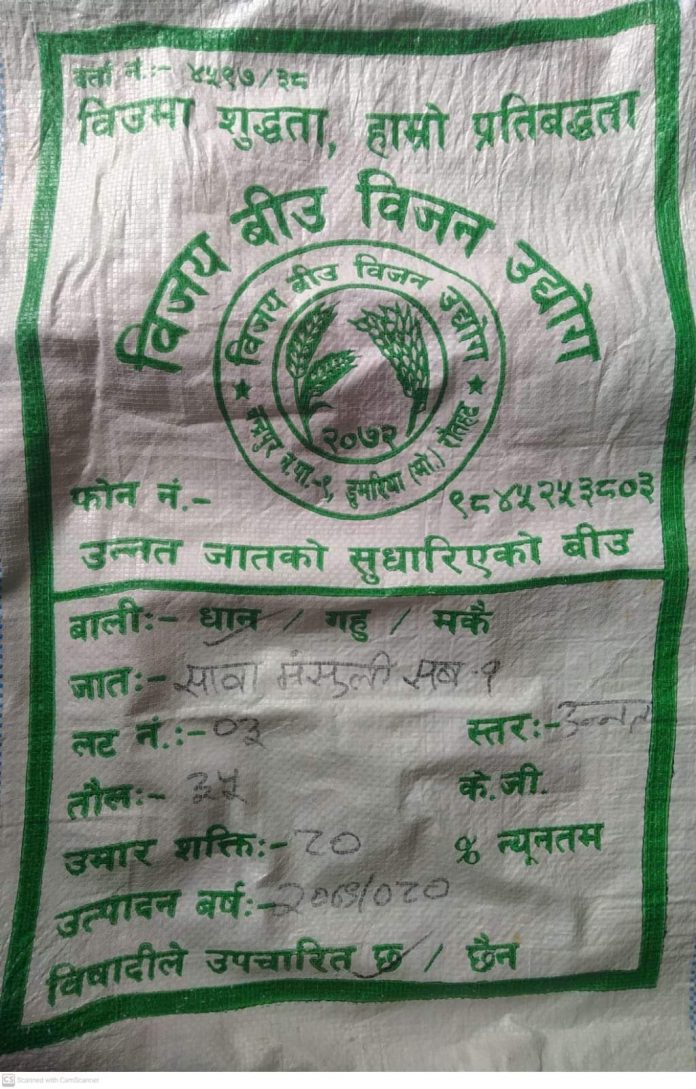 दर्ता नं.:- ४५९७/३८
विउमा शुद्धता, हाम्रो प्रतिबद्धता
विजय बीउ विजन उद्योग
विजय बीउ विजन उद्योग
२०७२
चन्द्रपुर न.पा.-९, डुमरिया (मो.) रौतहट
फोन नं.- ९८४५२५३८०३
उन्नत जातको सुधारिएको बीउ
बाली:- धान / गहु / मकै
जात:- सावा मंसुली सब-१
लट नं.:- 03 स्तर:- उन्नत
तौल:- ३५ के.जी.
उमार शक्ति:- ८० % न्यूनतम
उत्पादन बर्ष:-
विषादीले उपचारित छ / छैन
CS Scanned with CamScanner